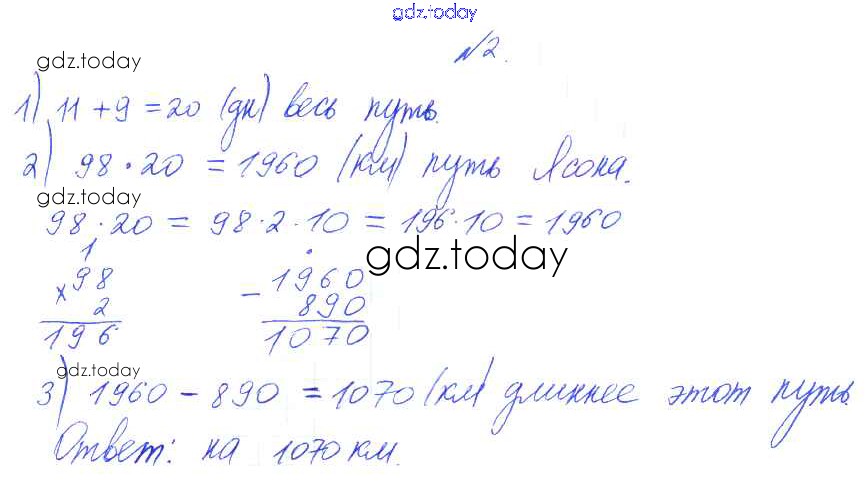 gdz.today
№2.
gdz.today
1) 11 + 9 = 20 (дн) весь путь.
2) 98 · 20 = 1960 (км) путь Ясона.
gdz.today
98 · 20 = 98 · 2 · 10 = 196 · 10 = 1960
gdz.today
1
× 98
2
196
− 1960
890
1070
gdz.today
3) 1960 − 890 = 1070 (км) длиннее этот путь.
Ответ: на 1070 км.